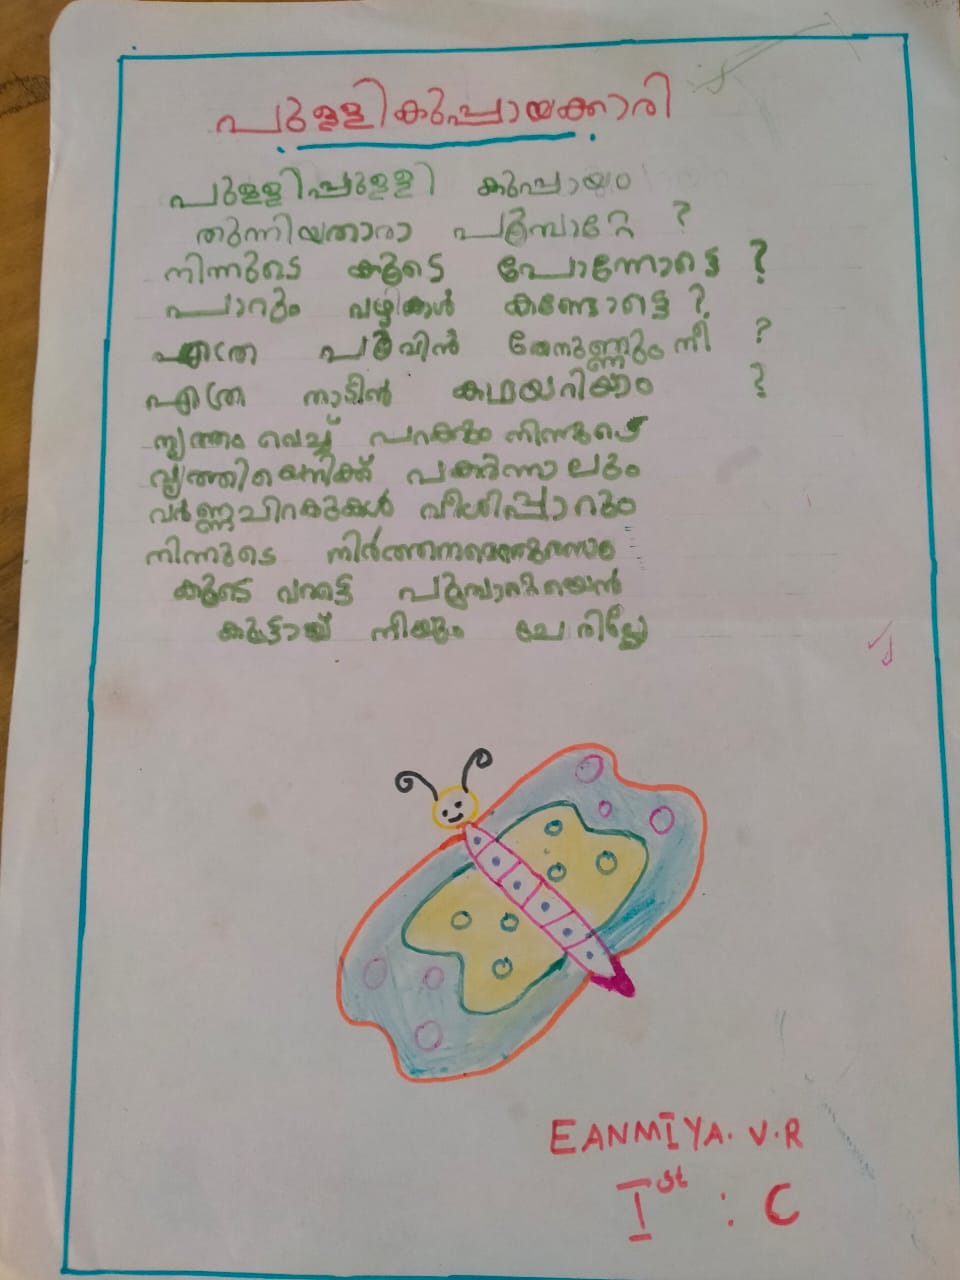 പുള്ളികുപ്പായക്കാരി
പുള്ളിപ്പുള്ളി കുപ്പായം
തുന്നിയതാരാ പൂമ്പാറ്റേ ?
നിന്നുടെ കൂടെ പോന്നോട്ടെ ?
പാറും വഴികൾ കണ്ടോട്ടെ ?
എത്ര പൂവിൻ തേനുണ്ണും നീ ?
എത്ര നാടിൻ കഥയറിയാം ?
നൃത്തം വെച്ച് പറക്കും നിന്നുടെ
വൃത്തിയെനിക്ക് പകർന്നാലും
വർണ്ണചിറകുകൾ വീശിപ്പാറും
നിന്നുടെ നിർത്തന
കൂടെ വരട്ടെ
കൂട്ടായ് നീയും ചേരില്ലേ
EANMIYA. V.R
Ist : C